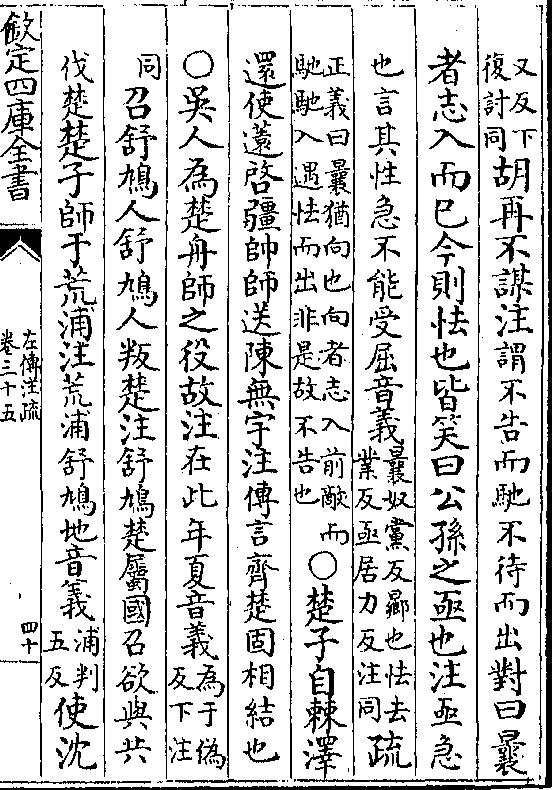 又反下
復討同
胡再不謀注謂不告而馳不待而出對曰曩
者志入而已今則怯也皆笑曰公孫之亟也注亟急
也言其性急不能受屈音義
曩奴黨反曏也怯去
業反亟居力反注同
疏
正義曰曩猶向也向者志入前敵而
馳馳入遇怯而出非是故不告也
〇楚子自棘澤
還使薳啓疆帥師送陳無宇注傳言齊楚固相結也
〇吳人為楚舟師之役故注在此年夏音義
為于偽
反下注
同
召舒鳩人舒鳩人叛楚注舒鳩楚屬國召欲與共
伐楚楚子師于荒浦注荒浦舒鳩地音義
浦判
五反
使沈
欽定四庫全書
左傳注疏
卷三十五
四十